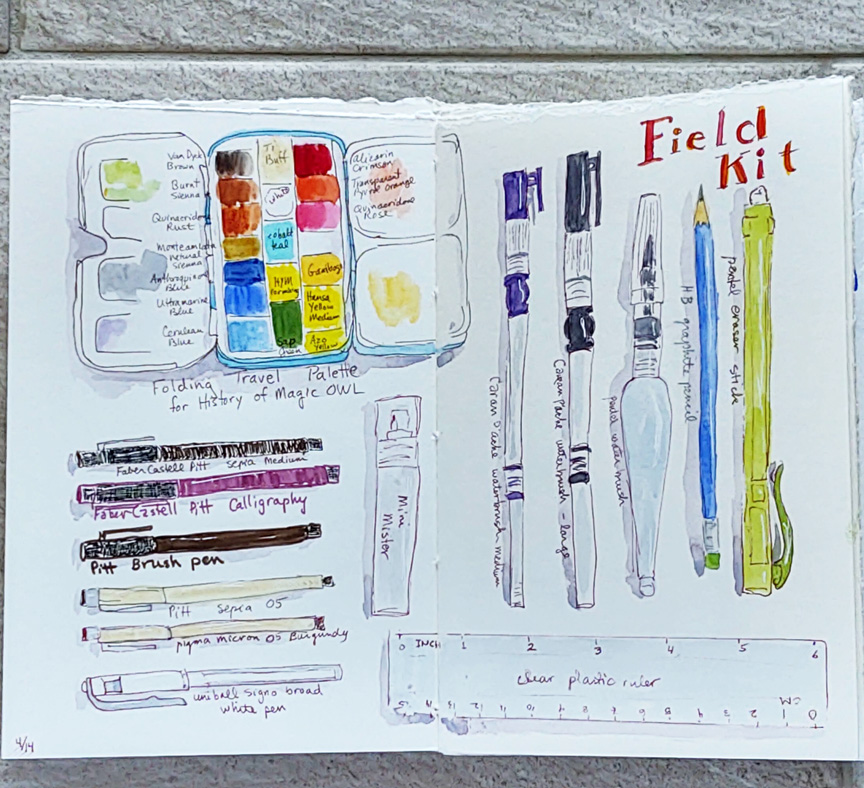 Field
Kit
Van Dyke
Brown
Burnt
Sienna
Quinacridone
Rust
Monteamiata
natural
sienna
Anthraquinoid
Blue
Ultramarine
Blue
Cerulean
Blue
Ti
Buff
white
cobalt
teal
HYM
Sap
Green
Gamboge
Hansa
Yellow
Medium
Azo
Yellow
Alizarin
Crimson
Transparent
Pyrrol Orange
Quinacridone
Rose
Folding Travel Palette
for History of Magic OWL
Faber Castell Pitt sepia Medium
Faber-Castell Pitt Calligraphy
Pitt Brush pen
Pitt Sepia 05
pigma micron 05 Burgundy
uniball signo broad
white pen
4/14
Mini
Mister
Caran D'ache waterbrush medium
Caran D'ache waterbrush - large
pentel water brush
HB graphite pencil
pentel eraser stick
0 INCH 1 2 3 4 5 6
clear plastic ruler
CM